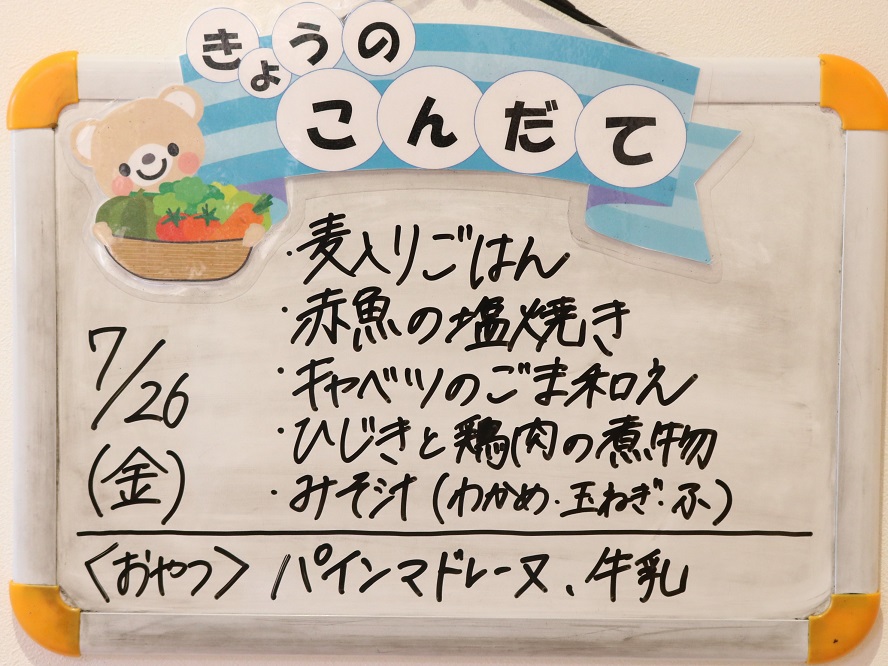 きょうの
こんだて
7/26
(金)
・麦入りごはん
・赤魚の塩焼き
・キャベツのごま和え
・ひじきと鶏肉の煮物
・みそ汁(わかめ・玉ねぎ・ふ)
〈おやつ〉 パインマドレーヌ、牛乳